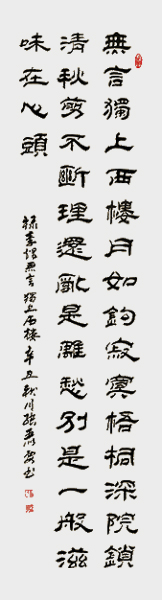 無言獨上西樓月如鉤寂寞梧桐深院鎖
清秋剪不斷理還亂是離愁別是一般滋
味在心頭
錄李煜無言獨上西樓辛丑秋月